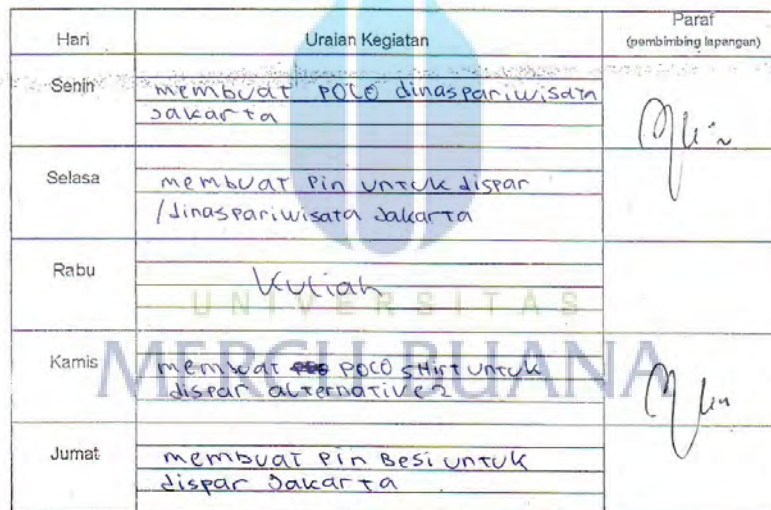 Hari Uraian Kegiatan Paraf
(pembimbing lapangan)
Senin membuat POLO dinaspariwisata
Jakarta
Selasa membuat Pin untuk dispar
/dinaspariwisata Jakarta
Rabu Kuliah
UNIVERSITAS
MERCU BUANA
Kamis membuat POLO SHirt untuk
dispar alternative 2
Jumat membuat Pin Besi untuk
dispar Jakarta